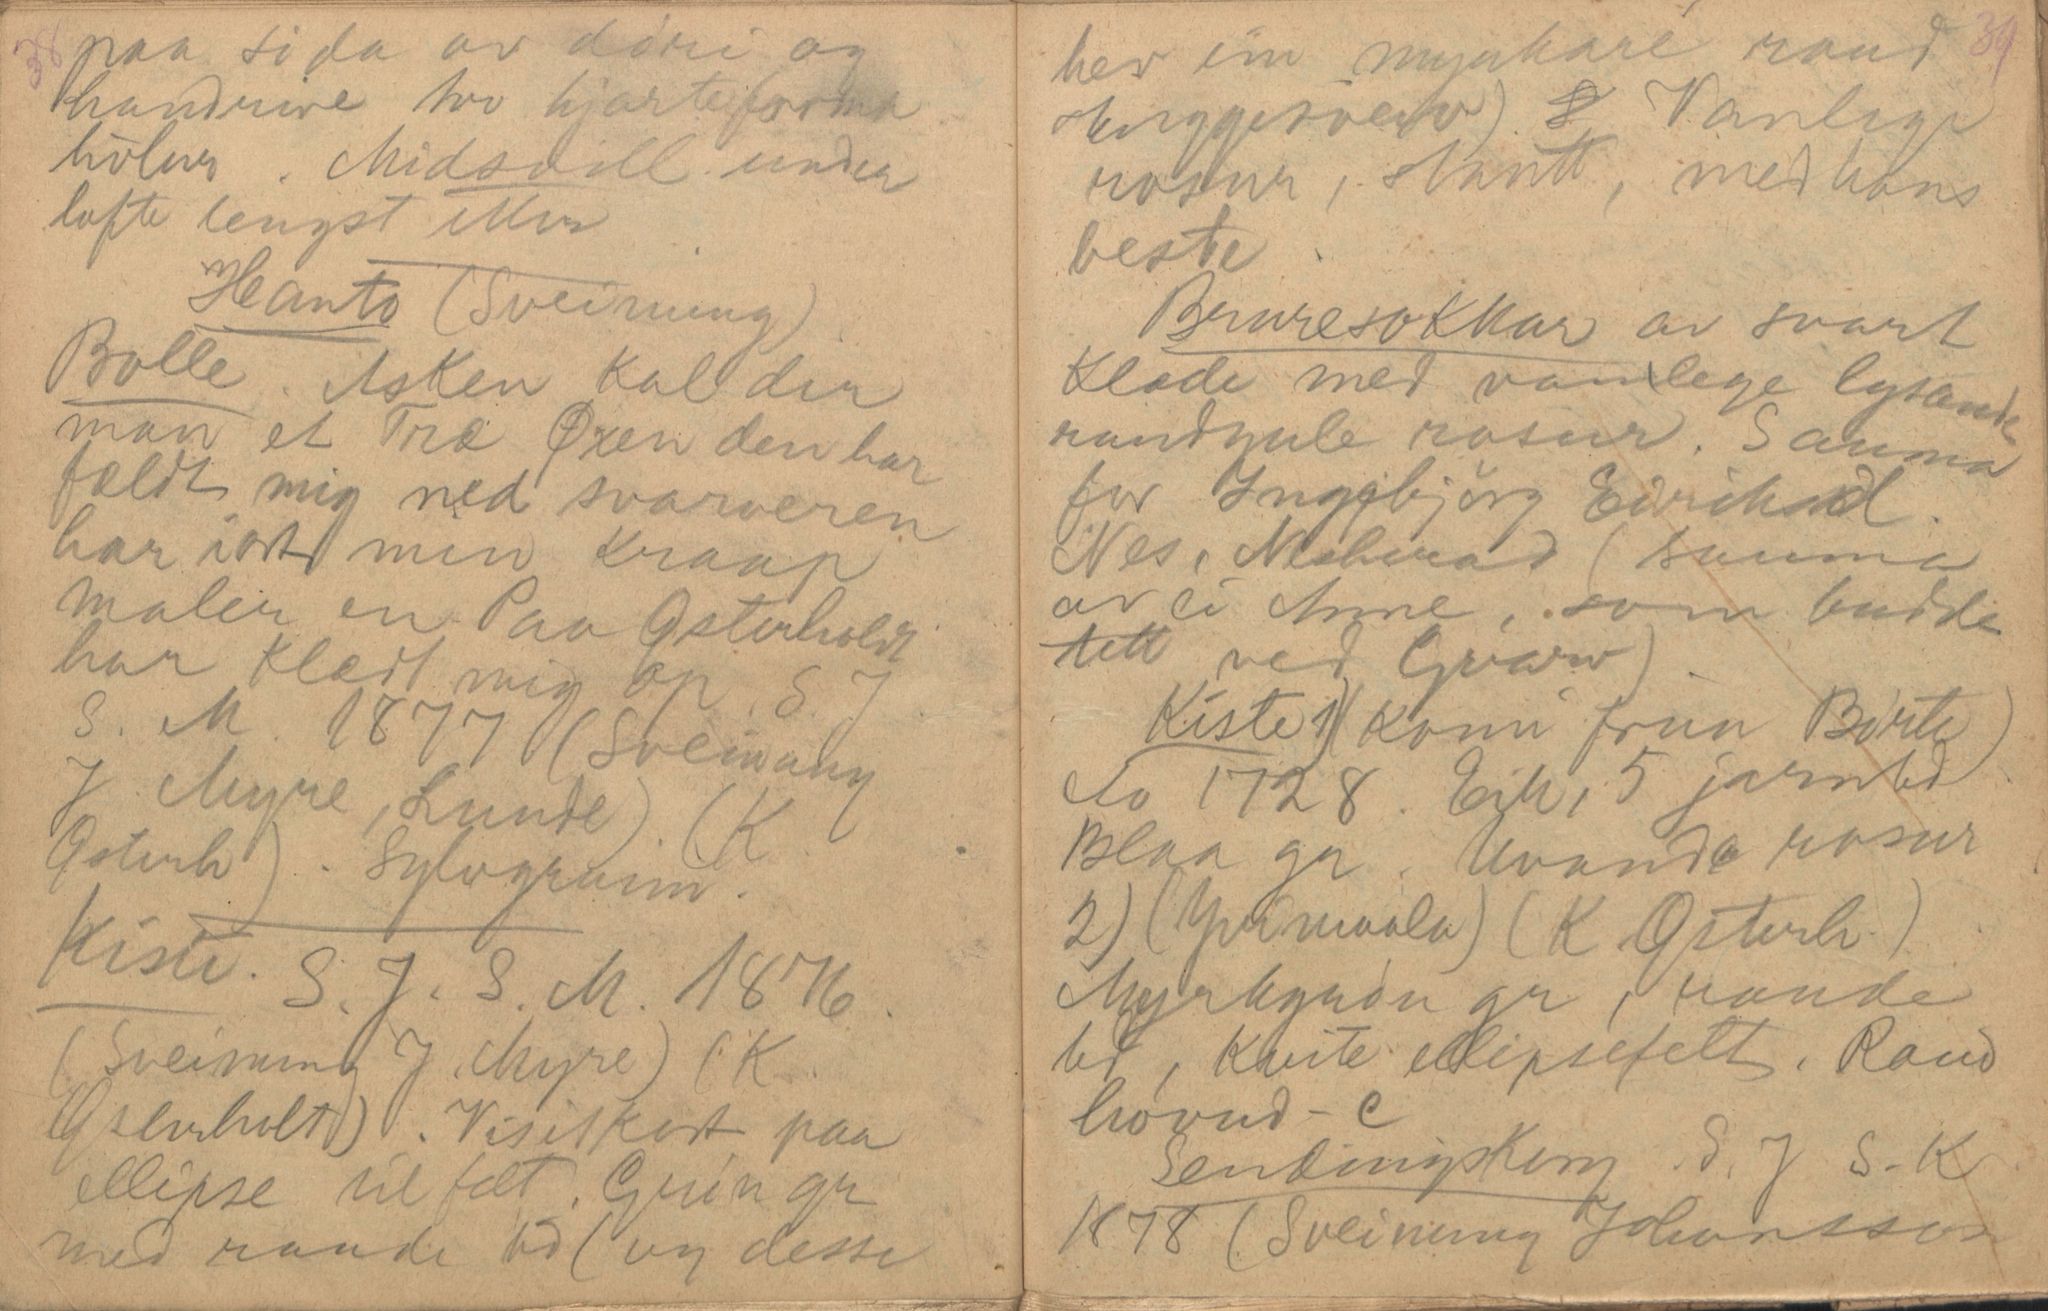 38
paa sida av dóri og
handrive tvo hjarteforma
hòlur. Midsvill under
lofte lengst
Heanto (Sveinung)
Bolle. Asken kalder
man et Træ Øxen den har
fældt mig ned svarveren
har min Kraap
maler en Paa Østerholdt
har klædt mig op. S J
S. M. 1877 (Sveinung
J Myre, Lunde) (K
Østerh). Sylvgraim.
Kiste. S. J. S. M. 1876.
(Sveinung J. Myre) (K.
Østerholt). Visitkort paa
ellipse felt. Grön gr
med raude bd (og desse
39
hev ein myukare raud
skuggesvev) Vanlege
rosur, skantt, med hans
beste.
Bruresokkar av svart
Klæde med vanlege lysande
raudgule rosur. Sauma
for Ingebjörg Eiriksd.
Nes, Nesherad (sauma
av ei Anne, som budde
tett ved Gvarv)
Kiste 1) (Komi frun Börte)
Ao 1728. Eik, 5 jarnbd
Blaa gr. Uvande rosur
2) (Yvimaala) (K Østerh.)
Myrkgrön gr, raude
bd, kvite ellipsefelt. Raud
hovud-c
Sendingskorg S. J S. K
1878 (Sveinung Johansson